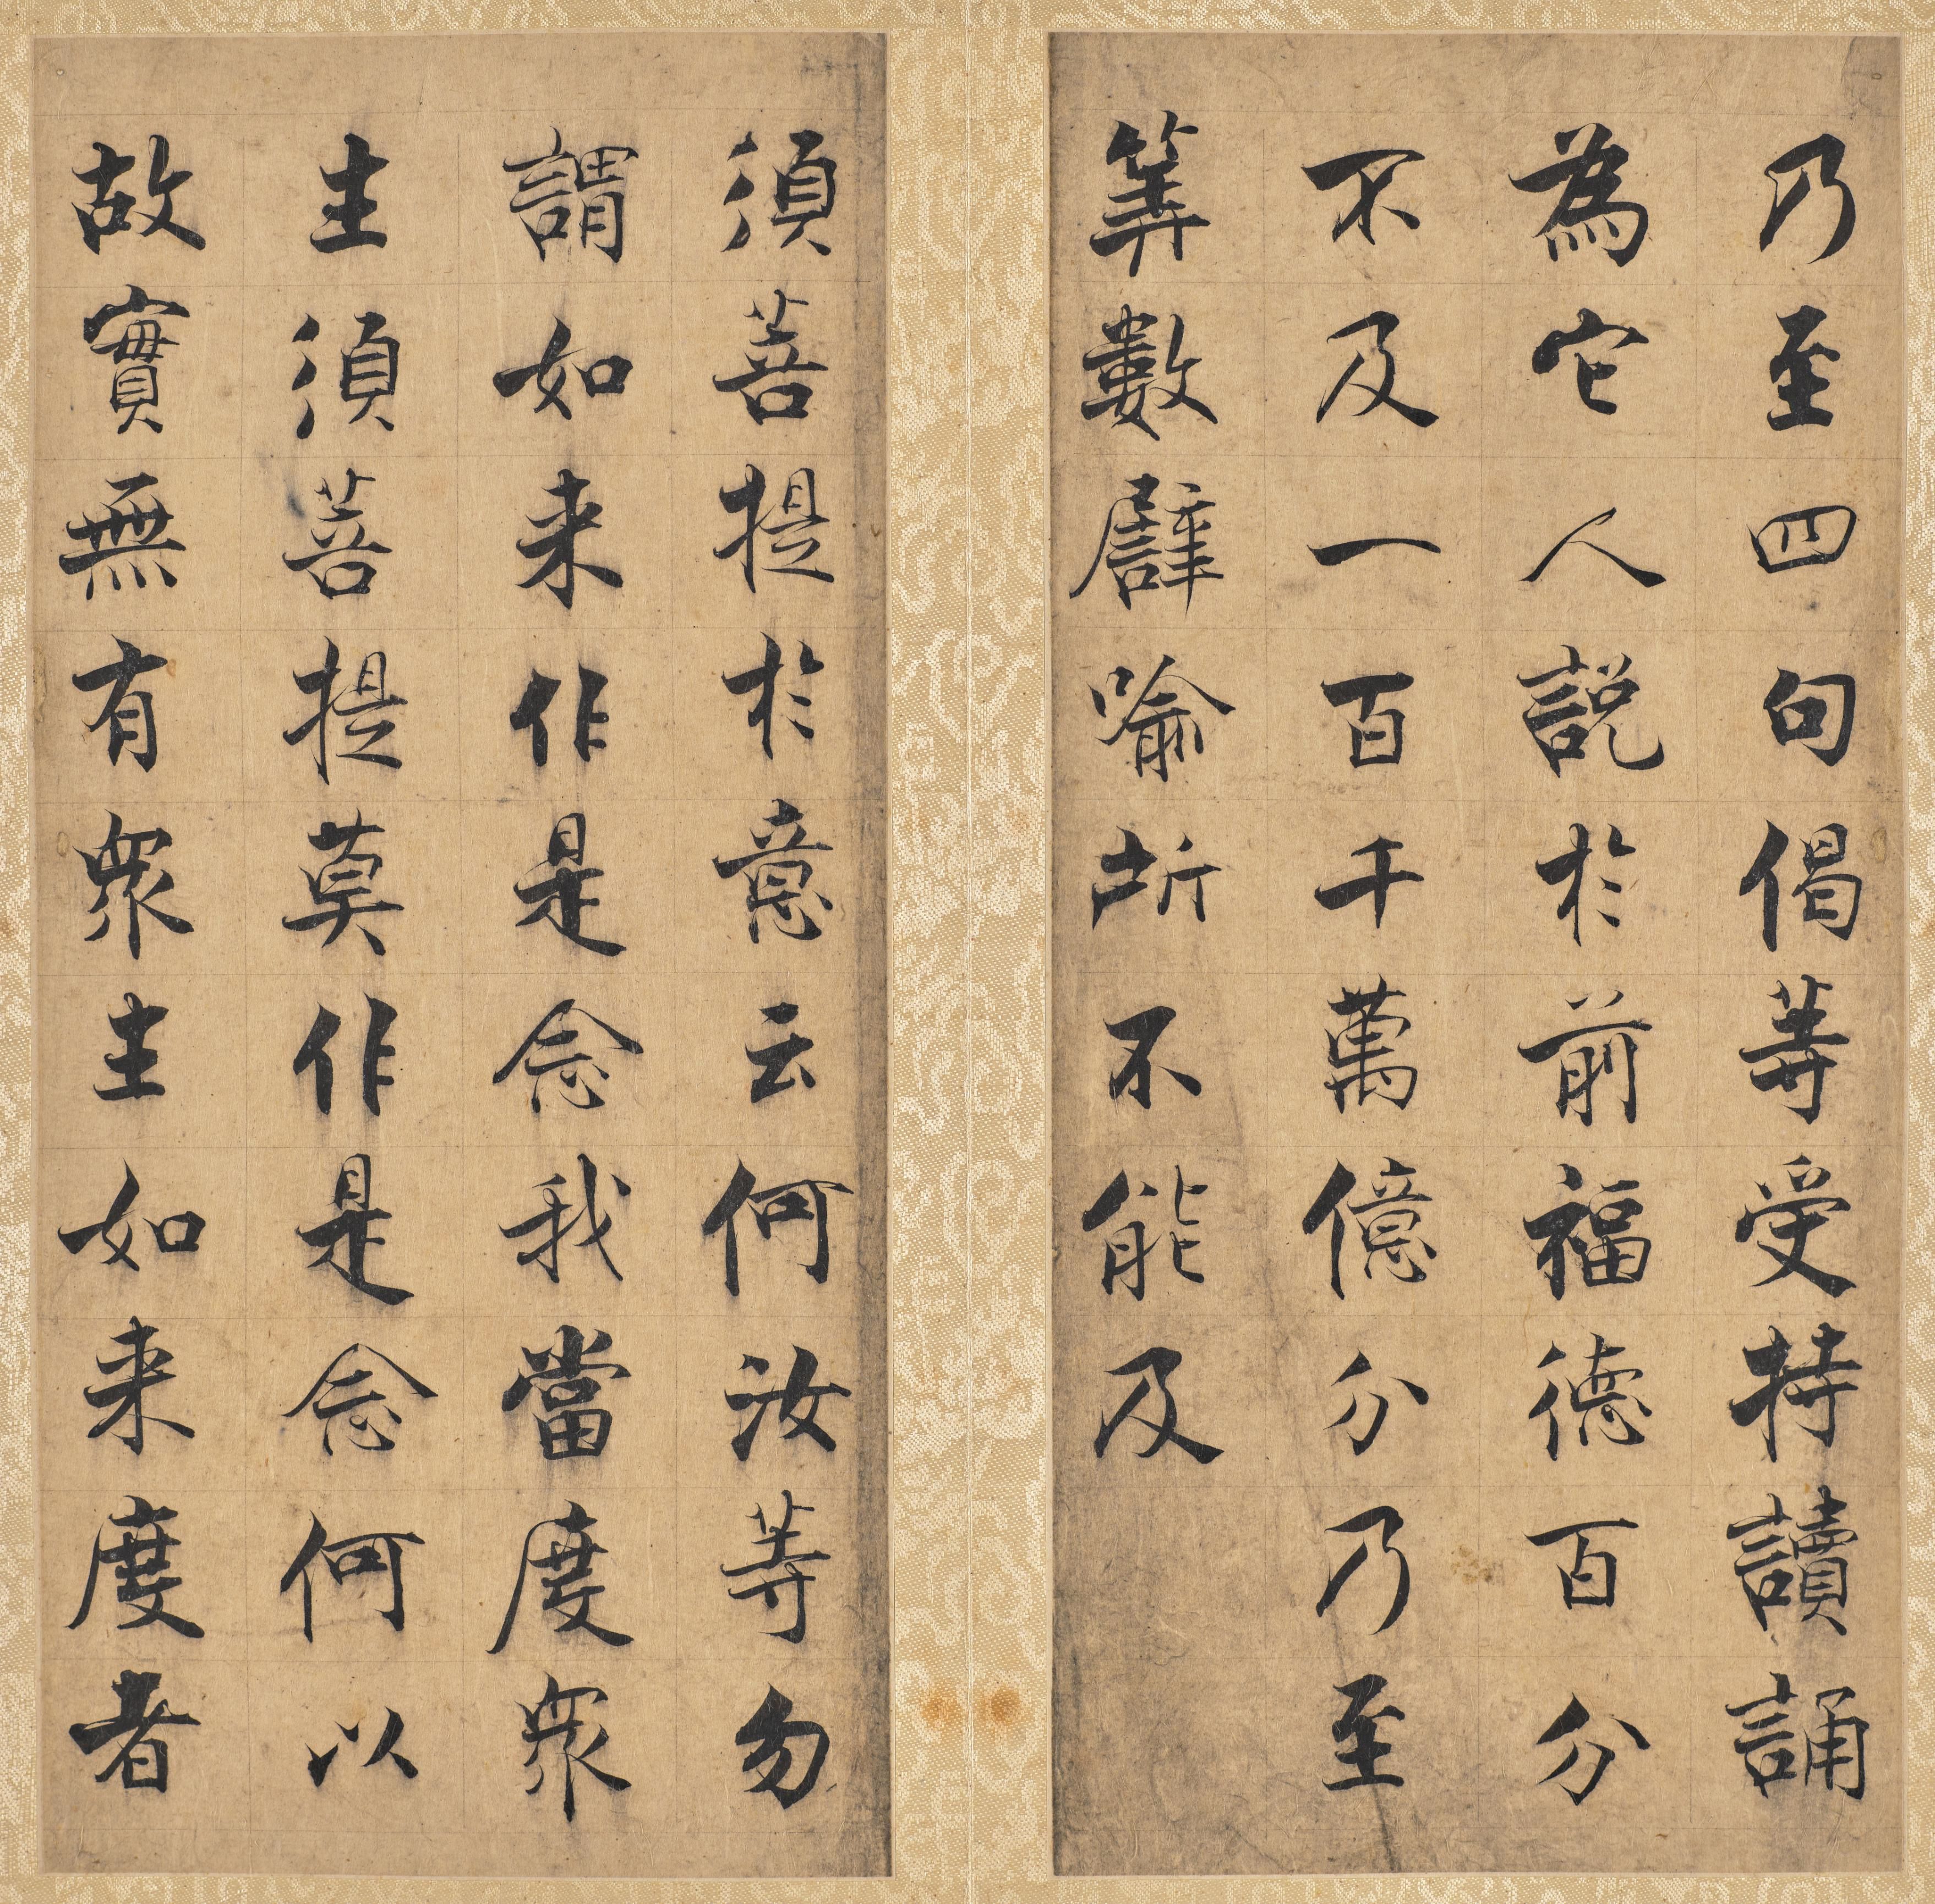 乃至四句偈等受持讀誦
為它人説於前福徳百分
不及一百千萬億分乃至
筭數譬喻所不能及
須菩提於意云何汝等勿
謂如来作是念我當度衆
生須菩提莫作是念何以
故實無有衆生如来度者